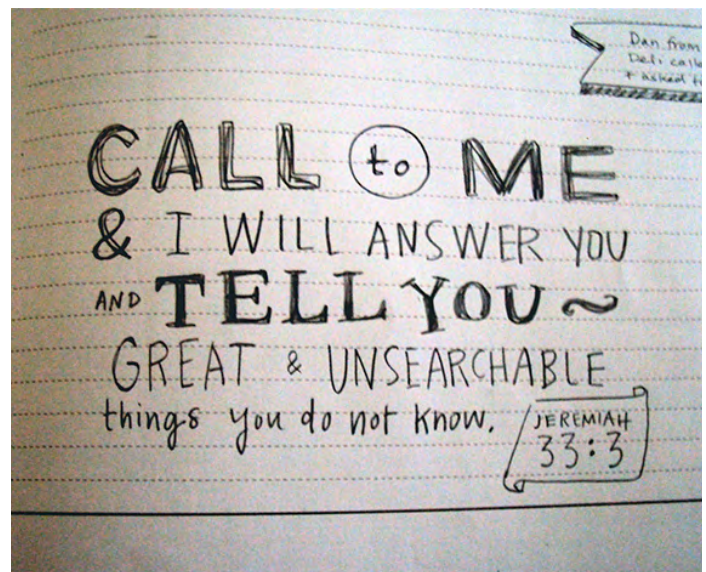 Dan from
Deli
+ asked
CALL to ME
& I WILL ANSWER YOU
AND TELL YOU ~
GREAT & UNSEARCHABLE
things you do not know.
JEREMIAH
33:3